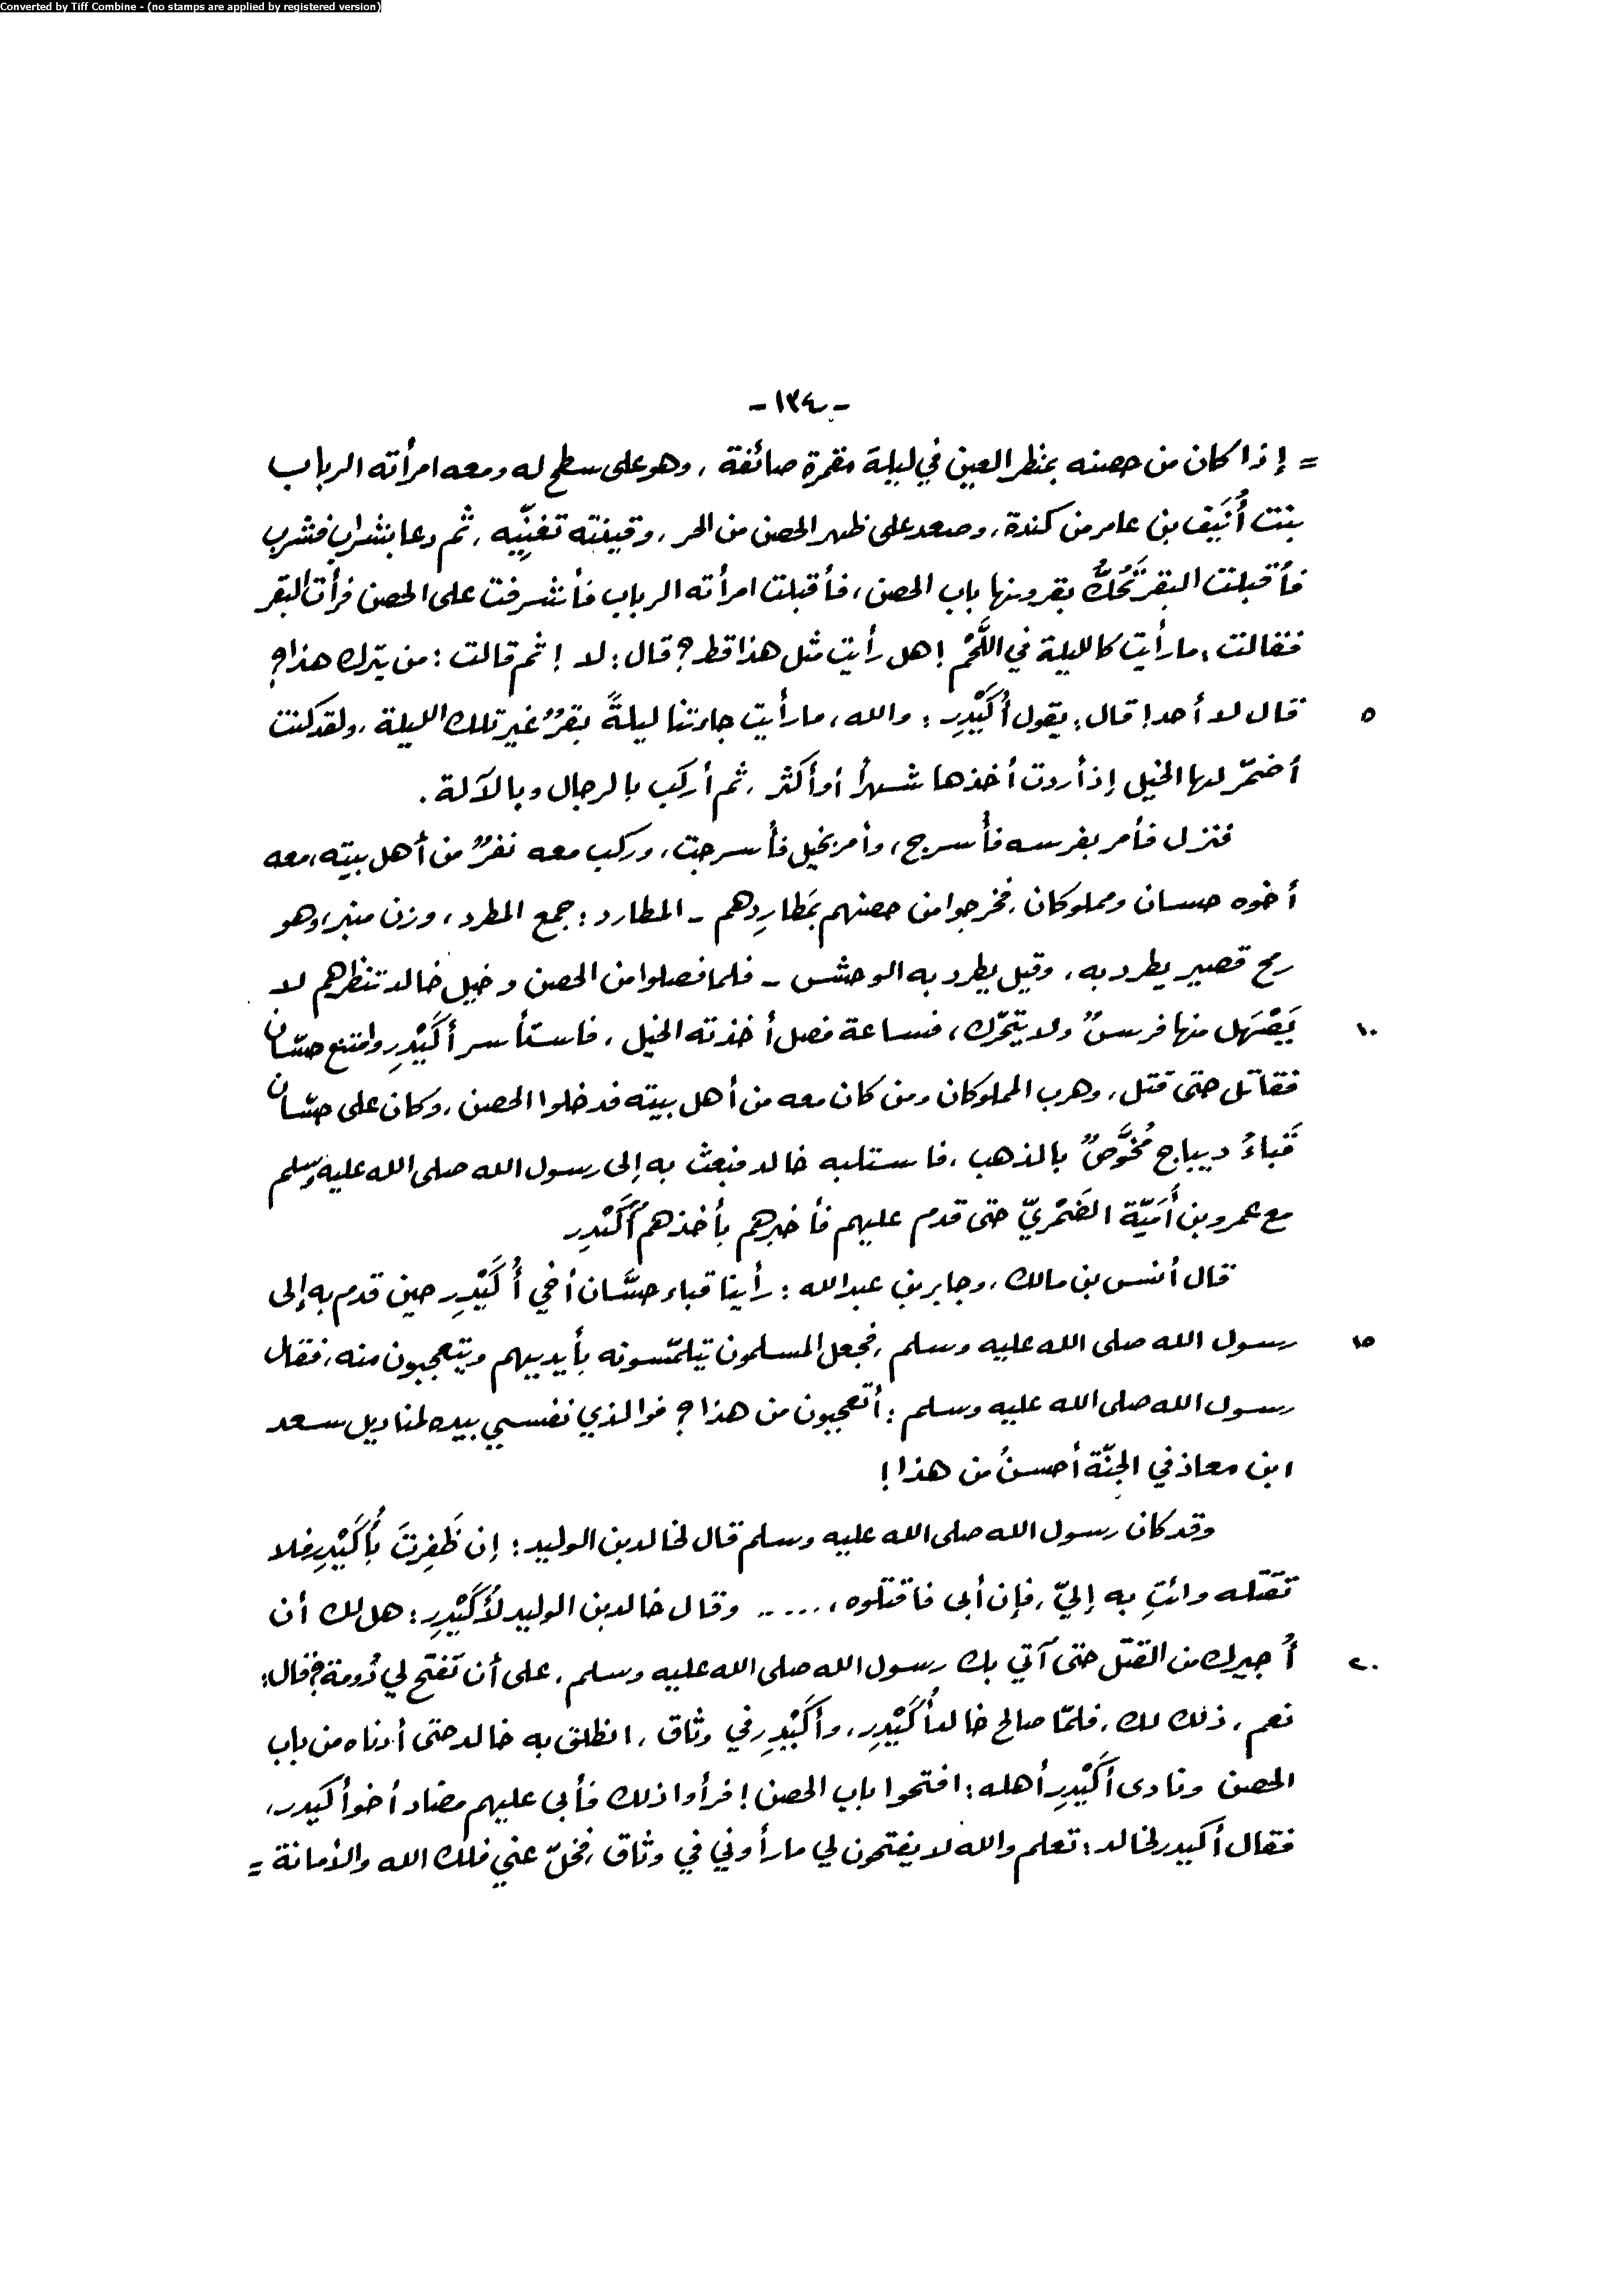 Converted by Tiff Combine - (no stamps are applied by registered version)
- ١٣٤ -
= إذا كان من حصنه بمنظر العين في ليلة مقمرة صائفة ، وهو على سطح له ومعه امرأته الرباب
بنت أُنَيف بن عامر من كندة ، وصعد على ظهر الحصن من الحر ، وقينته تغنّيه ، ثم دعا بشراب فشرب
فأقبلت البقر تَحُكُّ بقرونها باب الحصن ، فأقبلت امرأته الرباب فأشرفت على الحصن فرأت البقر
فقالت : ما رأيت كالليلة في اللَّحْم ! هل رأيت مثل هذا قط ؟ قال : لا ! ثم قالت : من يترك هذا ؟
٥ قال لا أحد ! قال : يقول أُكَيْدِر : والله ، ما رأيت جاءتنا ليلةً بقرٌ غير تلك الليلة ، ولقد كنت
أضمّر لها الخيل إذ أردت أخذها شهراً أو أكثر ، ثم أركب بالرجال وبالآلة .
فنزل فأمر بفرسه فأُسرج ، وأمر بخيل فأسرجت ، وركب معه نفرٌ من أهل بيته ، معه
أخوه حسان ومملوكان ، فخرجوا من حصنهم بمَطارِدِهم - المطارد : جمع المطرد ، وزن منبر ، وهو
رمح قصير يطرد به ، وقيل يطرد به الوحش - فلما فصلوا من الحصن وخيل خالد تنظرهم لا
١٠ يَصْهَل منها فرسٌ ولا يتحرّك ، فساعة فصل أخذته الخيل ، فاستأسر أُكَيْدِر وامتنع حسّان
فقاتل حتى قتل ، وهرب المملوكان ومن كان معه من أهل بيته فدخلوا الحصن ، وكان على حسّان
قَباءُ ديباج مُخَوَّصٌ بالذهب ، فاستلبه خالد فبعث به إلى رسول الله صلى الله عليه وسلم
مع عمرو بن أُمَيّة الضَمْريّ حتى قدم عليهم فأخبرهم بأخذهم أُكَيْدِر
قال أنس بن مالك ، وجابر بن عبد الله : رأينا قباء حسَّان أخي أُكَيْدِر حين قدم به إلى
١٥ رسول الله صلى الله عليه وسلم ، فجعل المسلمون يتلمّسونه بأيديهم ويتعجبون منه ، فقال
رسول الله صلى الله عليه وسلم : أتعجبون من هذا ؟ فوالذي نفسي بيده لمناديل سعد
ابن معاذ في الجنّة أحسنُ من هذا !
وقد كان رسول الله صلى الله عليه وسلم قال لخالد بن الوليد : إن ظَفِرتَ بأُكَيْدِر فلا
تقتله وائتِ به إليّ ، فإن أبى فاقتلوه ، ..... وقال خالد بن الوليد لأُكَيْدِر : هل لك أن
٢٠ أُجيرك من القتل حتى آتي بك رسول الله صلى الله عليه وسلم ، على أن تفتح لي دُومة ؟ قال :
نعم ، ذلك لك ، فلمّا صالح خالد أُكَيْدِر ، وأُكَيْدِر في وثاق ، انطلق به خالد حتى أدناه من باب
الحصن ونادى أُكَيْدِر أهله : افتحوا باب الحصن ! فرأوا ذلك فأبى عليهم مضاد أخو أكيدر ،
فقال أكيدر لخالد : تعلم والله لا يفتحون لي ما رأوني في وثاق ، فخلّ عني فلك الله والأمانة =